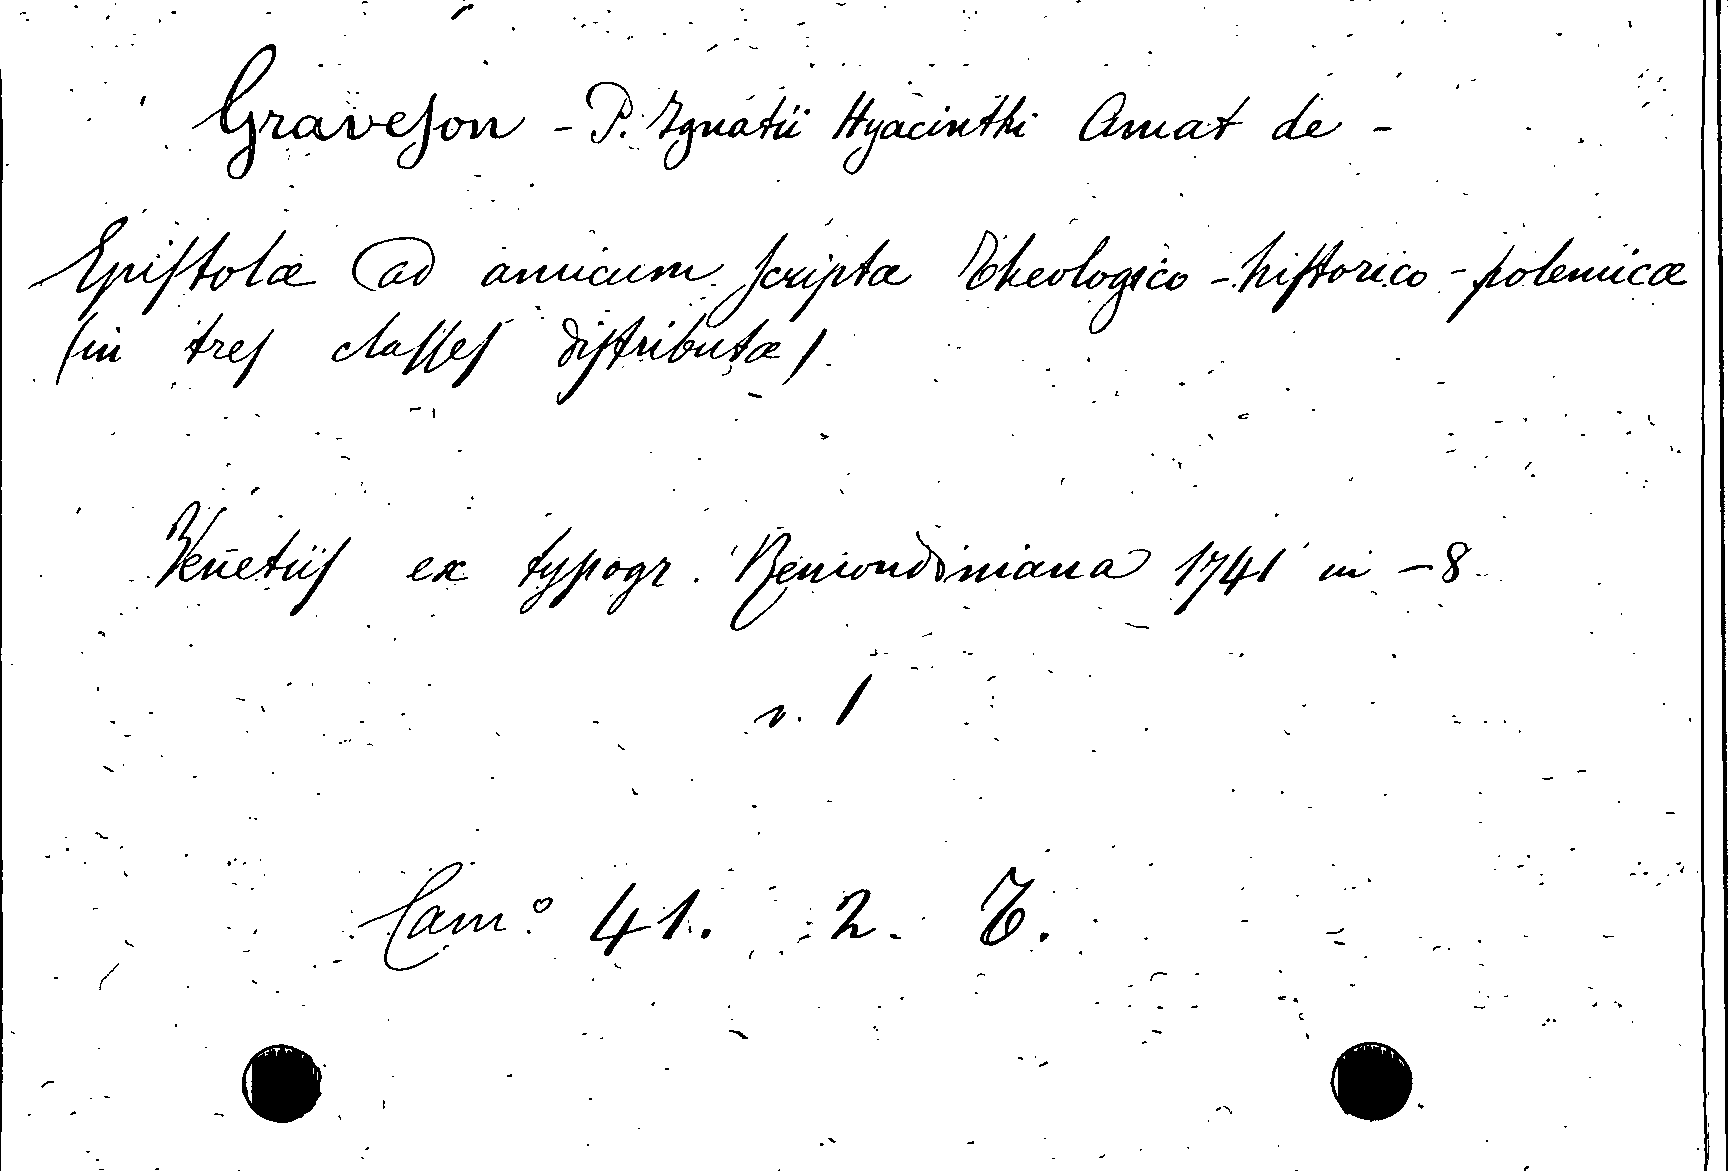 Graveson - P. Ignatii Hyacinthi Amat de -
Epistolæ ad amicum scriptæ Theologico - historico - polemicæ
(in tres classes distributæ)
Venetiis ex typogr. Remondiniana 1741 in - 8
v. 1
Cam° 41. 2. 6.